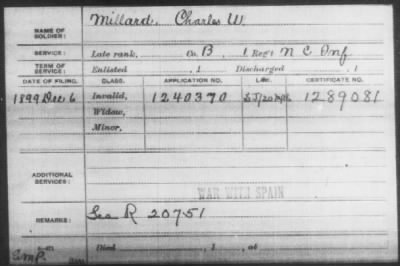 NAME OF SOLDIER: Millard, Charles W.
SERVICE: Late rank, Co. B, 1 Reg't N C Inf
TERM OF SERVICE: Enlisted , 1 Discharged , 1
DATE OF FILING. CLASS. APPLICATION NO. LAW. CERTIFICATE NO.
1899 Dec 6 Invalid, 1240370 1289081
Widow,
Minor,
ADDITIONAL SERVICES:
WAR WITH SPAIN
REMARKS: R 20751
Died , 1 , at